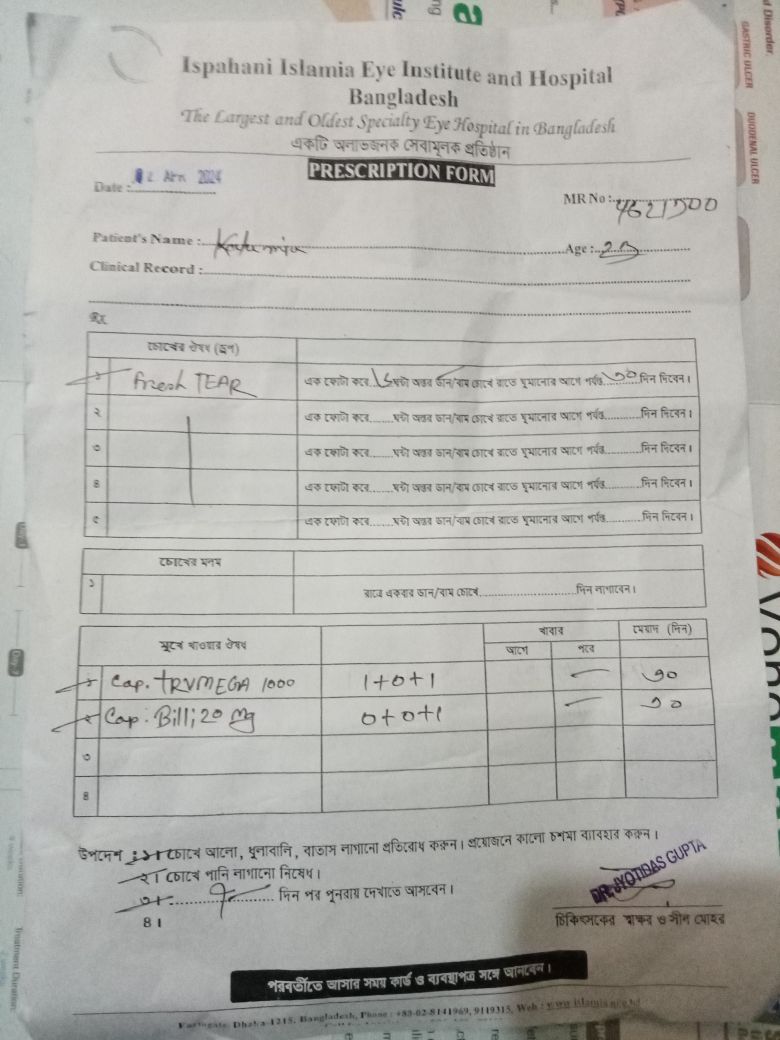 Ispahani Islamia Eye Institute and Hospital
Bangladesh
The Largest and Oldest Specialty Eye Hospital in Bangladesh
একটি অলাভজনক সেবামূলক প্রতিষ্ঠান
PRESCRIPTION FORM
Date : 2 APR 2024
MR No :
Patient's Name :
Age :
Clinical Record :
Rx
চোখের ঔষধ (ড্রপ)
১ Fresh TEAR এক ফোটা করে ঘন্টা অন্তর ডান/বাম চোখে রাতে ঘুমানোর আগে পর্যন্ত ৩০ দিন দিবেন।
২ এক ফোটা করে........ঘন্টা অন্তর ডান/বাম চোখে রাতে ঘুমানোর আগে পর্যন্ত............দিন দিবেন।
৩ এক ফোটা করে........ঘন্টা অন্তর ডান/বাম চোখে রাতে ঘুমানোর আগে পর্যন্ত............দিন দিবেন।
৪ এক ফোটা করে........ঘন্টা অন্তর ডান/বাম চোখে রাতে ঘুমানোর আগে পর্যন্ত............দিন দিবেন।
৫ এক ফোটা করে........ঘন্টা অন্তর ডান/বাম চোখে রাতে ঘুমানোর আগে পর্যন্ত............দিন দিবেন।
চোখের মলম
১ রাতে একবার ডান/বাম চোখে............................দিন লাগাবেন।
মুখে খাওয়ার ঔষধ খাবার মেয়াদ (দিন)
আগে পরে
১ Cap. TRUMEGA 1000 1+0+1 ৩০
২ Cap. Billi 20 mg 0+0+1 ৩০
৩
৪
উপদেশ : ১। চোখে আলো, ধুলাবালি, বাতাস লাগানো প্রতিরোধ করুন। প্রয়োজনে কালো চশমা ব্যবহার করুন।
২। চোখে পানি লাগানো নিষেধ।
৩। দিন পর পুনরায় দেখাতে আসবেন।
৪।
DR. JYOTIDAS GUPTA
চিকিৎসকের স্বাক্ষর ও সীল মোহর
পরবর্তীতে আসার সময় কার্ড ও ব্যবস্থাপত্র সঙ্গে আনবেন।
Dhaka-1215, Bangladesh, Phone : +88-02-8141969, 9119315, Web :
GASTRIC ULCER
DUODENAL ULCER
Treatment Duration: